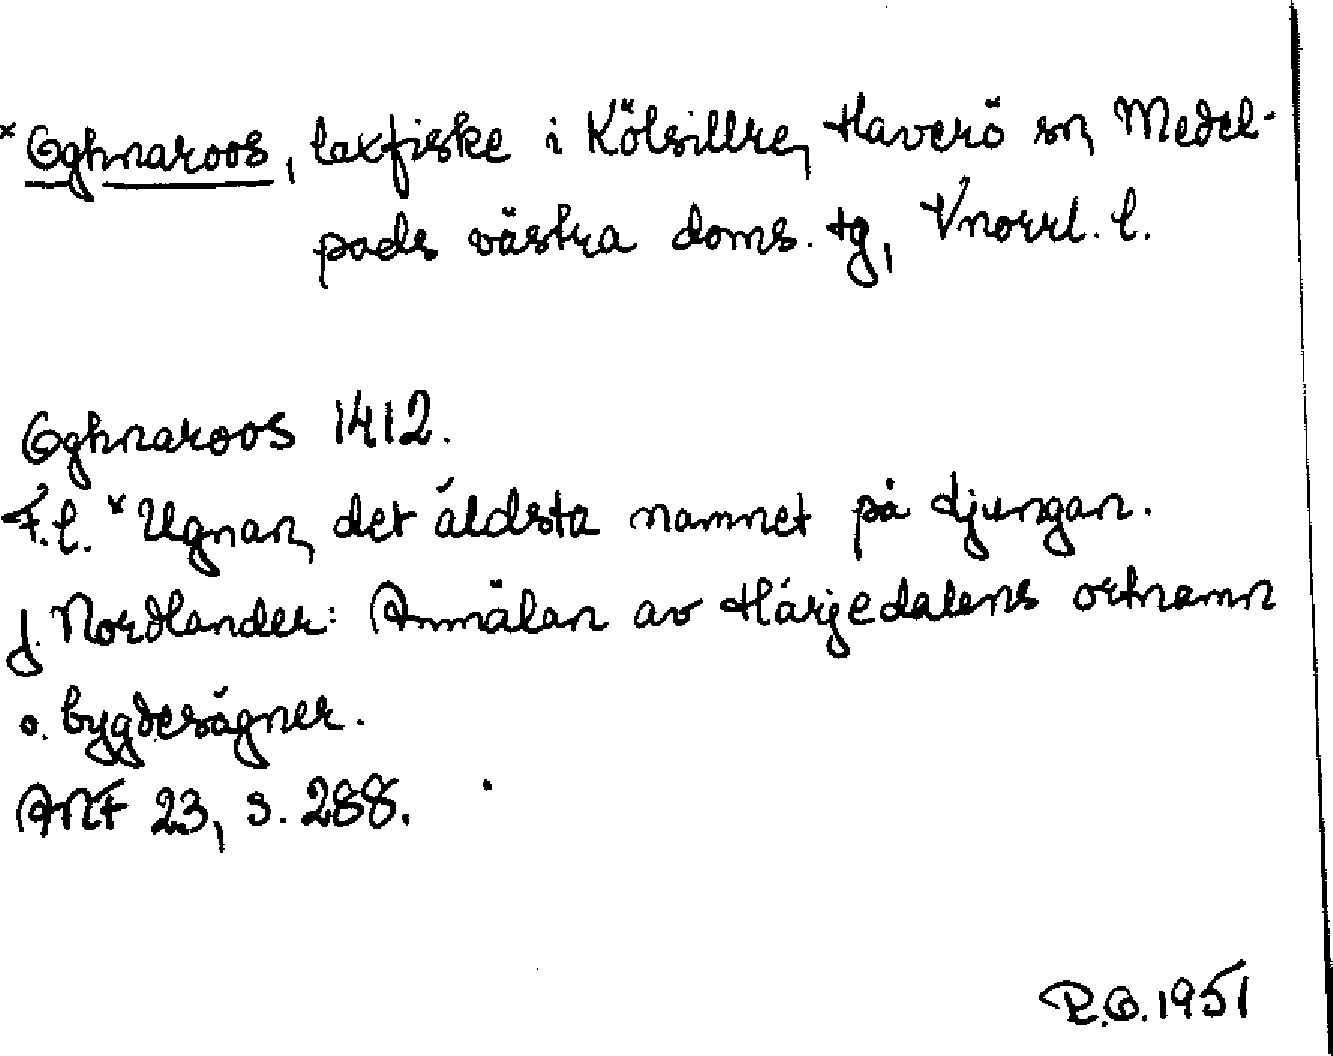 * Oghnaroos, laxfiske i Kölsillre, Haverö sn, Medel-
pads västra doms. tg, Vnorrl. l.
Oghnaroos 1412.
F.l. * Ugnan, det äldsta namnet på Ljungan.
J. Nordlander: Anmälan av Härjedalens ortnamn
o. bygdesägner.
ANF 23, s. 288.
R.O. 1951